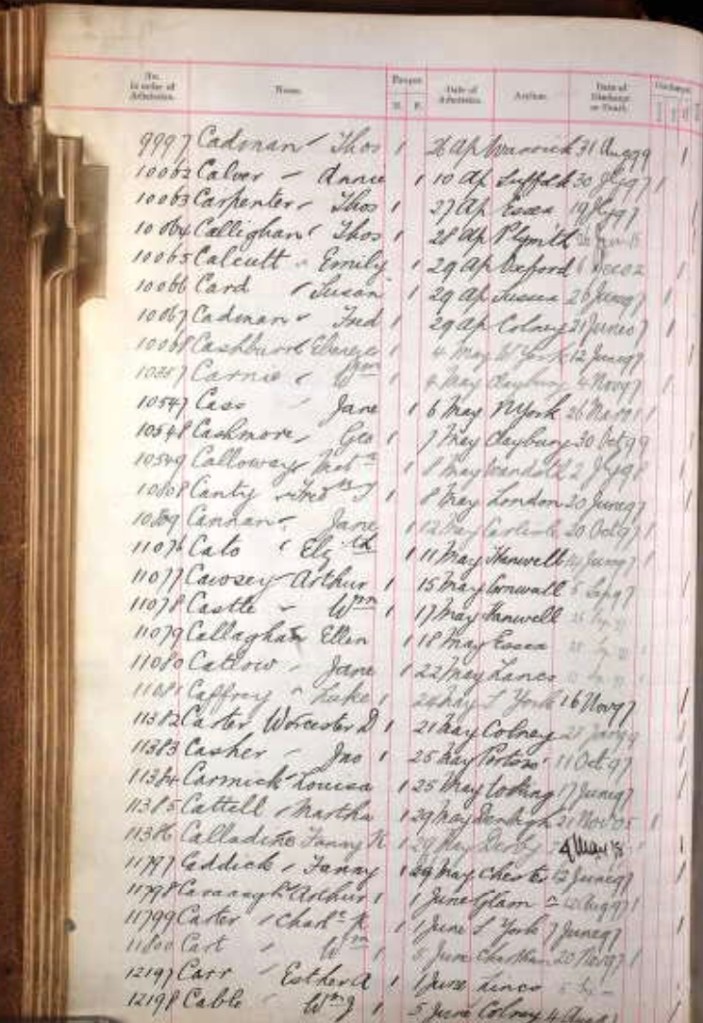 No. in order of Admission. Name. Pauper M. F. Date of Admission. Asylum. Date of Discharge or Death. Discharge
9997 Cadman Thos 1 26 Ap Warwick 31 Aug 99 1
10062 Calver Annie 1 10 Ap Suffolk 30 Jy 97 1
10063 Carpenter Thos 1 27 Ap Essex 19 Jy 97 1
10064 Callighan Thos 1 28 Ap Plymth
10065 Calcutt Emily 1 29 Ap Oxford 6 Dec 02 1
10066 Card Susan 1 29 Ap Sussex 26 June 97 1
10067 Cadman Fred 1 29 Ap Colney 21 June 07 1
10068 Cashburn Ebenezer 1 4 May W York 12 June 97 1
10357 Carnie Wm 1 4 May Claybury 4 Nov 97 1
10547 Cass Jane 1 6 May N York 26 Mar 01 1
10548 Cashmore Geo 1 7 May Claybury 30 Oct 99 1
10549 Calloway 1 8 May Wandsth 2 Jy 98 1
10808 Canty 1 8 May London 20 June 97 1
10809 Cannan Jane 1 12 May Carlisle 20 Oct 97 1
11076 Cato Elizth 1 11 May Hanwell 1
11077 Cawsey Arthur 1 15 May Cornwall 5 Sep 97 1
11078 Castle Wm 1 17 May Hanwell
11079 Callaghan Ellen 1 18 May Essex
11080 Catlow Jane 1 22 May Lancs
11081 Caffrey Luke 1 May S York 16 Nov 97 1
11382 Carter Worcester D 1 21 May Colney 1
11383 Casher Jno 1 25 May Portsm 11 Oct 97 1
11384 Carmick Louisa 1 25 May Woking 17 June 97 1
11385 Cattell Martha 1 29 May Denbigh 21 Nov 05 1
11386 Calladine Fanny K 1 29 May Derby 1
11797 Caddick Fanny 1 29 May Chester 12 June 97 1
11798 Cavanagh Arthur 1 1 June Glam 12 Aug 97 1
11799 Carter Charls K 1 1 June S York 7 June 97 1
11800 Cart Wm 1 5 June Chatham 20 Nov 97 1
12197 Carr Esther A 1 1 June Lincs
12198 Cable Wm J 1 5 June Colney 4 Aug